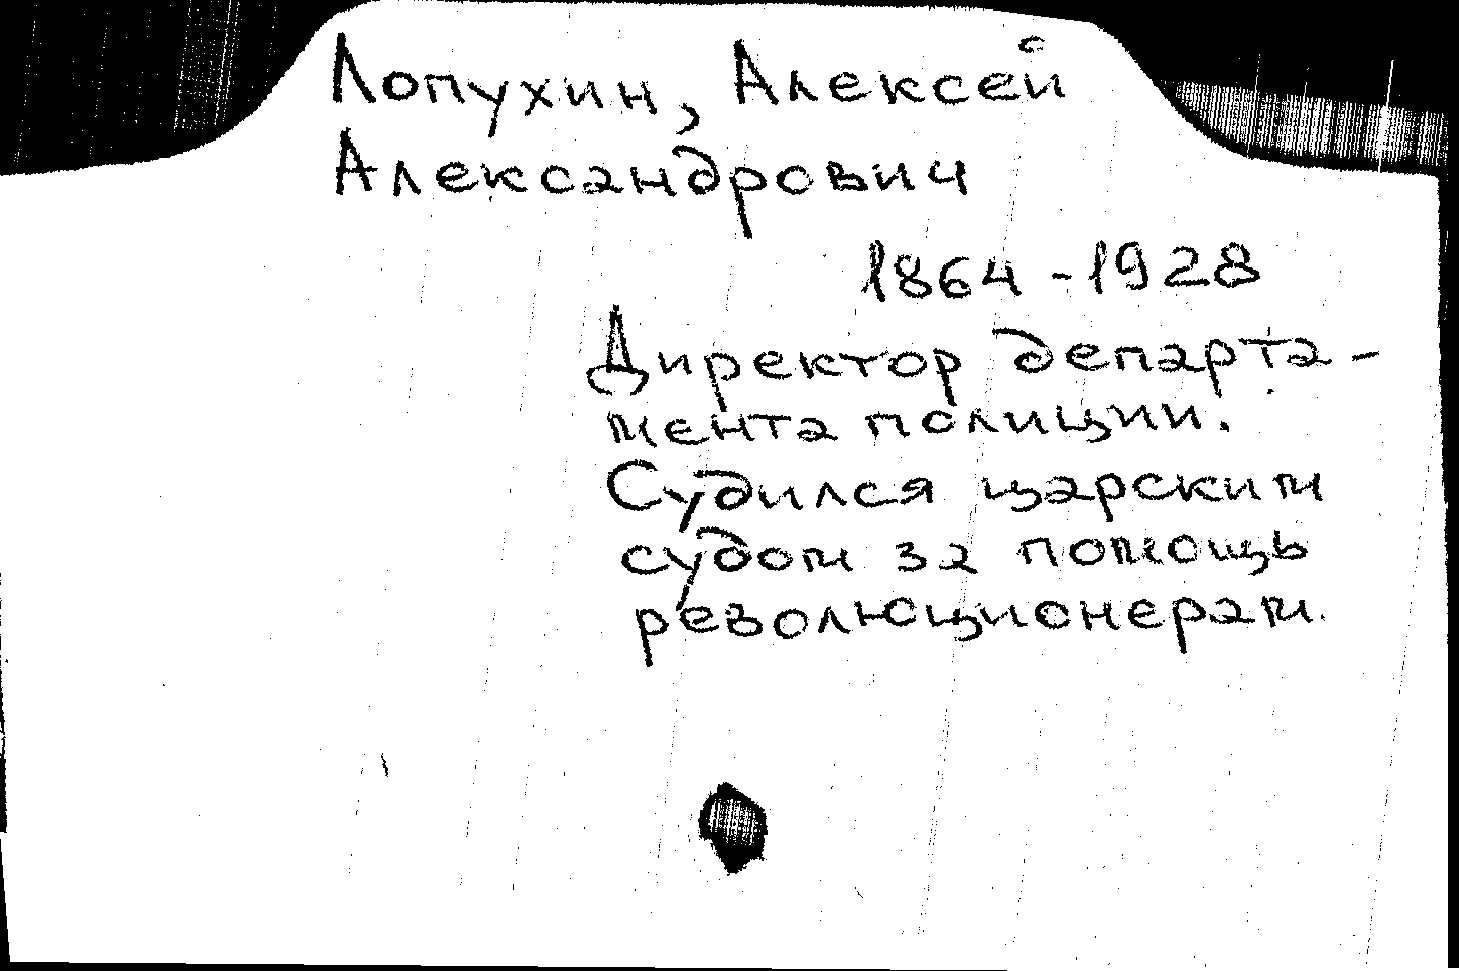 Лопухин, Алексей
Александрович
1864-1928
Директор департа-
мента полиции.
Судился царским
судом за помощь
революционерам.